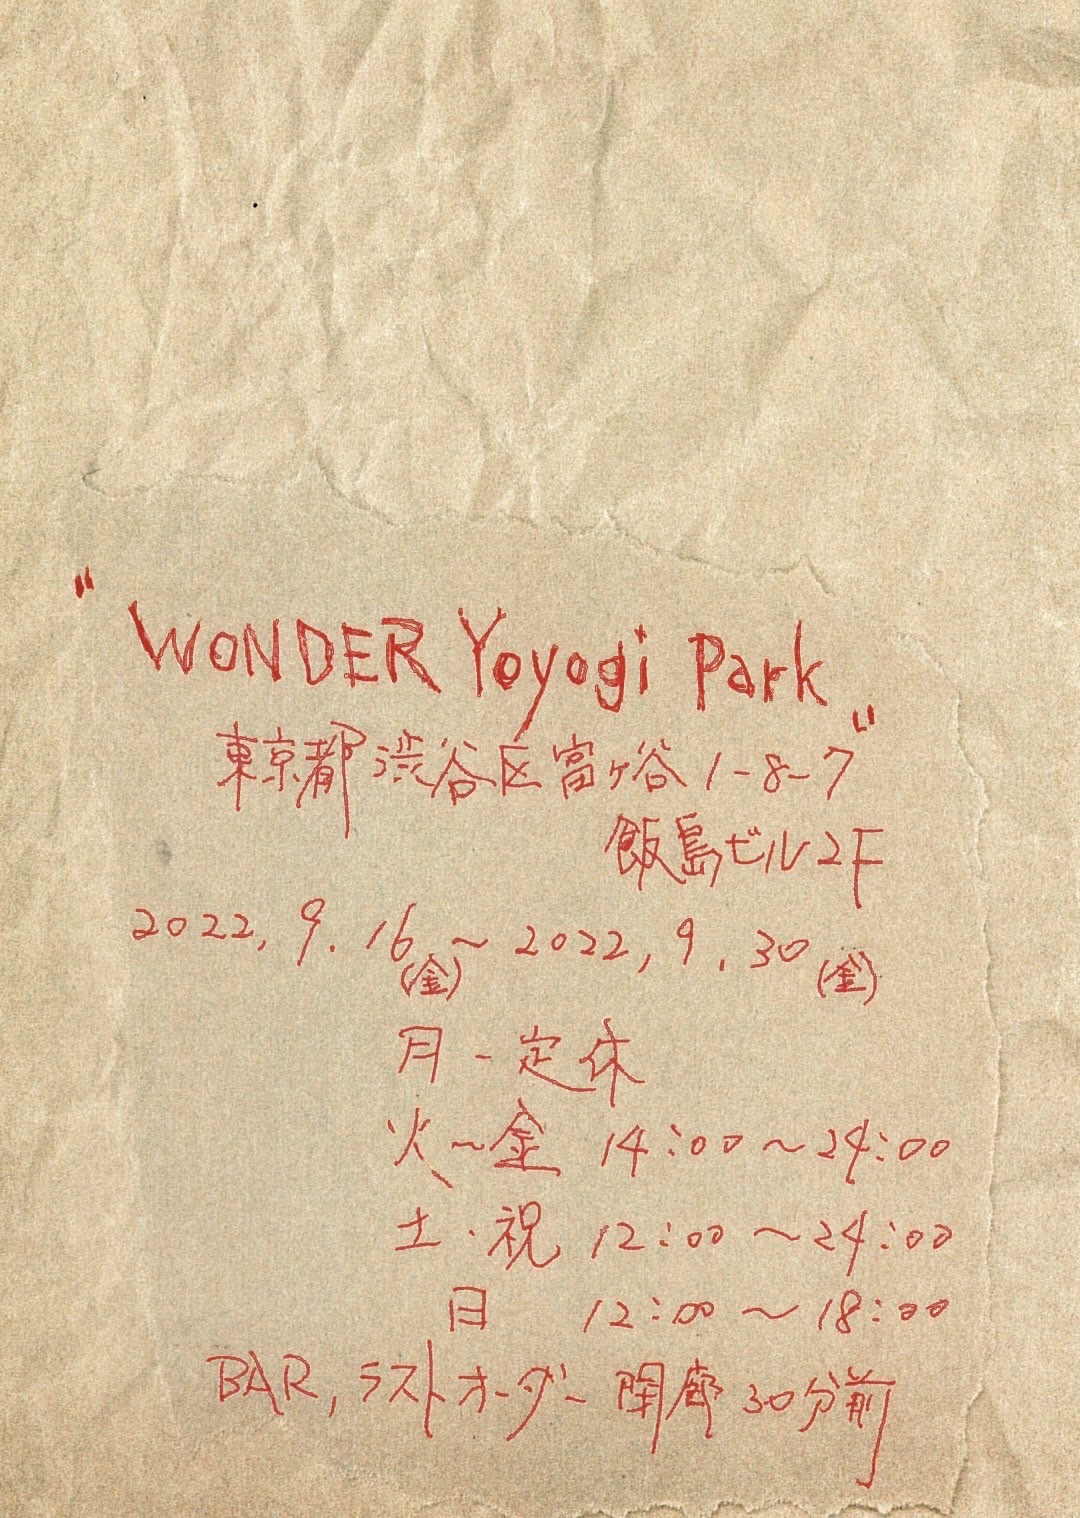 "WONDER Yoyogi Park"
東京都渋谷区富ヶ谷1-8-7
飯島ビル2F
2022.9.16(金)~2022.9.30(金)
月-定休
火~金 14:00~24:00
土・祝 12:00~24:00
日 12:00~18:00
BAR,ラストオーダー 閉廊30分前